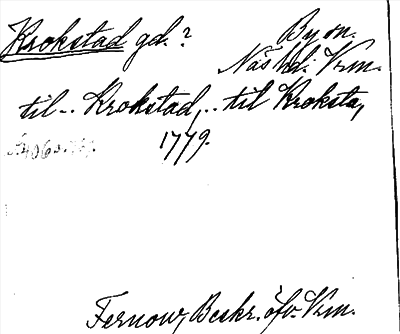 Krokstad gd.?
By sn.
Näs hd. Vrm.
til.. Krokstad,.. til Kroksta,
1779.
Fernow, Beskr. öfv. Vrm.